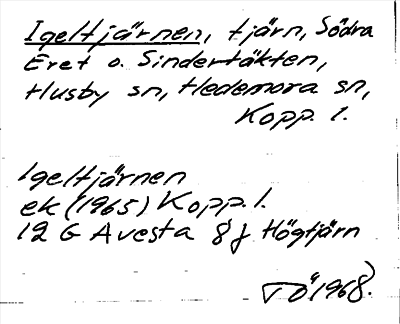 Igeltjärnen, tjärn, Södra
Eret o. Sindertäkten,
Husby sn, Hedemora sn,
Kopp. l.
Igeltjärnen
ek (1965) Kopp. l.
12 G Avesta 8 f Högtjärn
TÖ 1968.